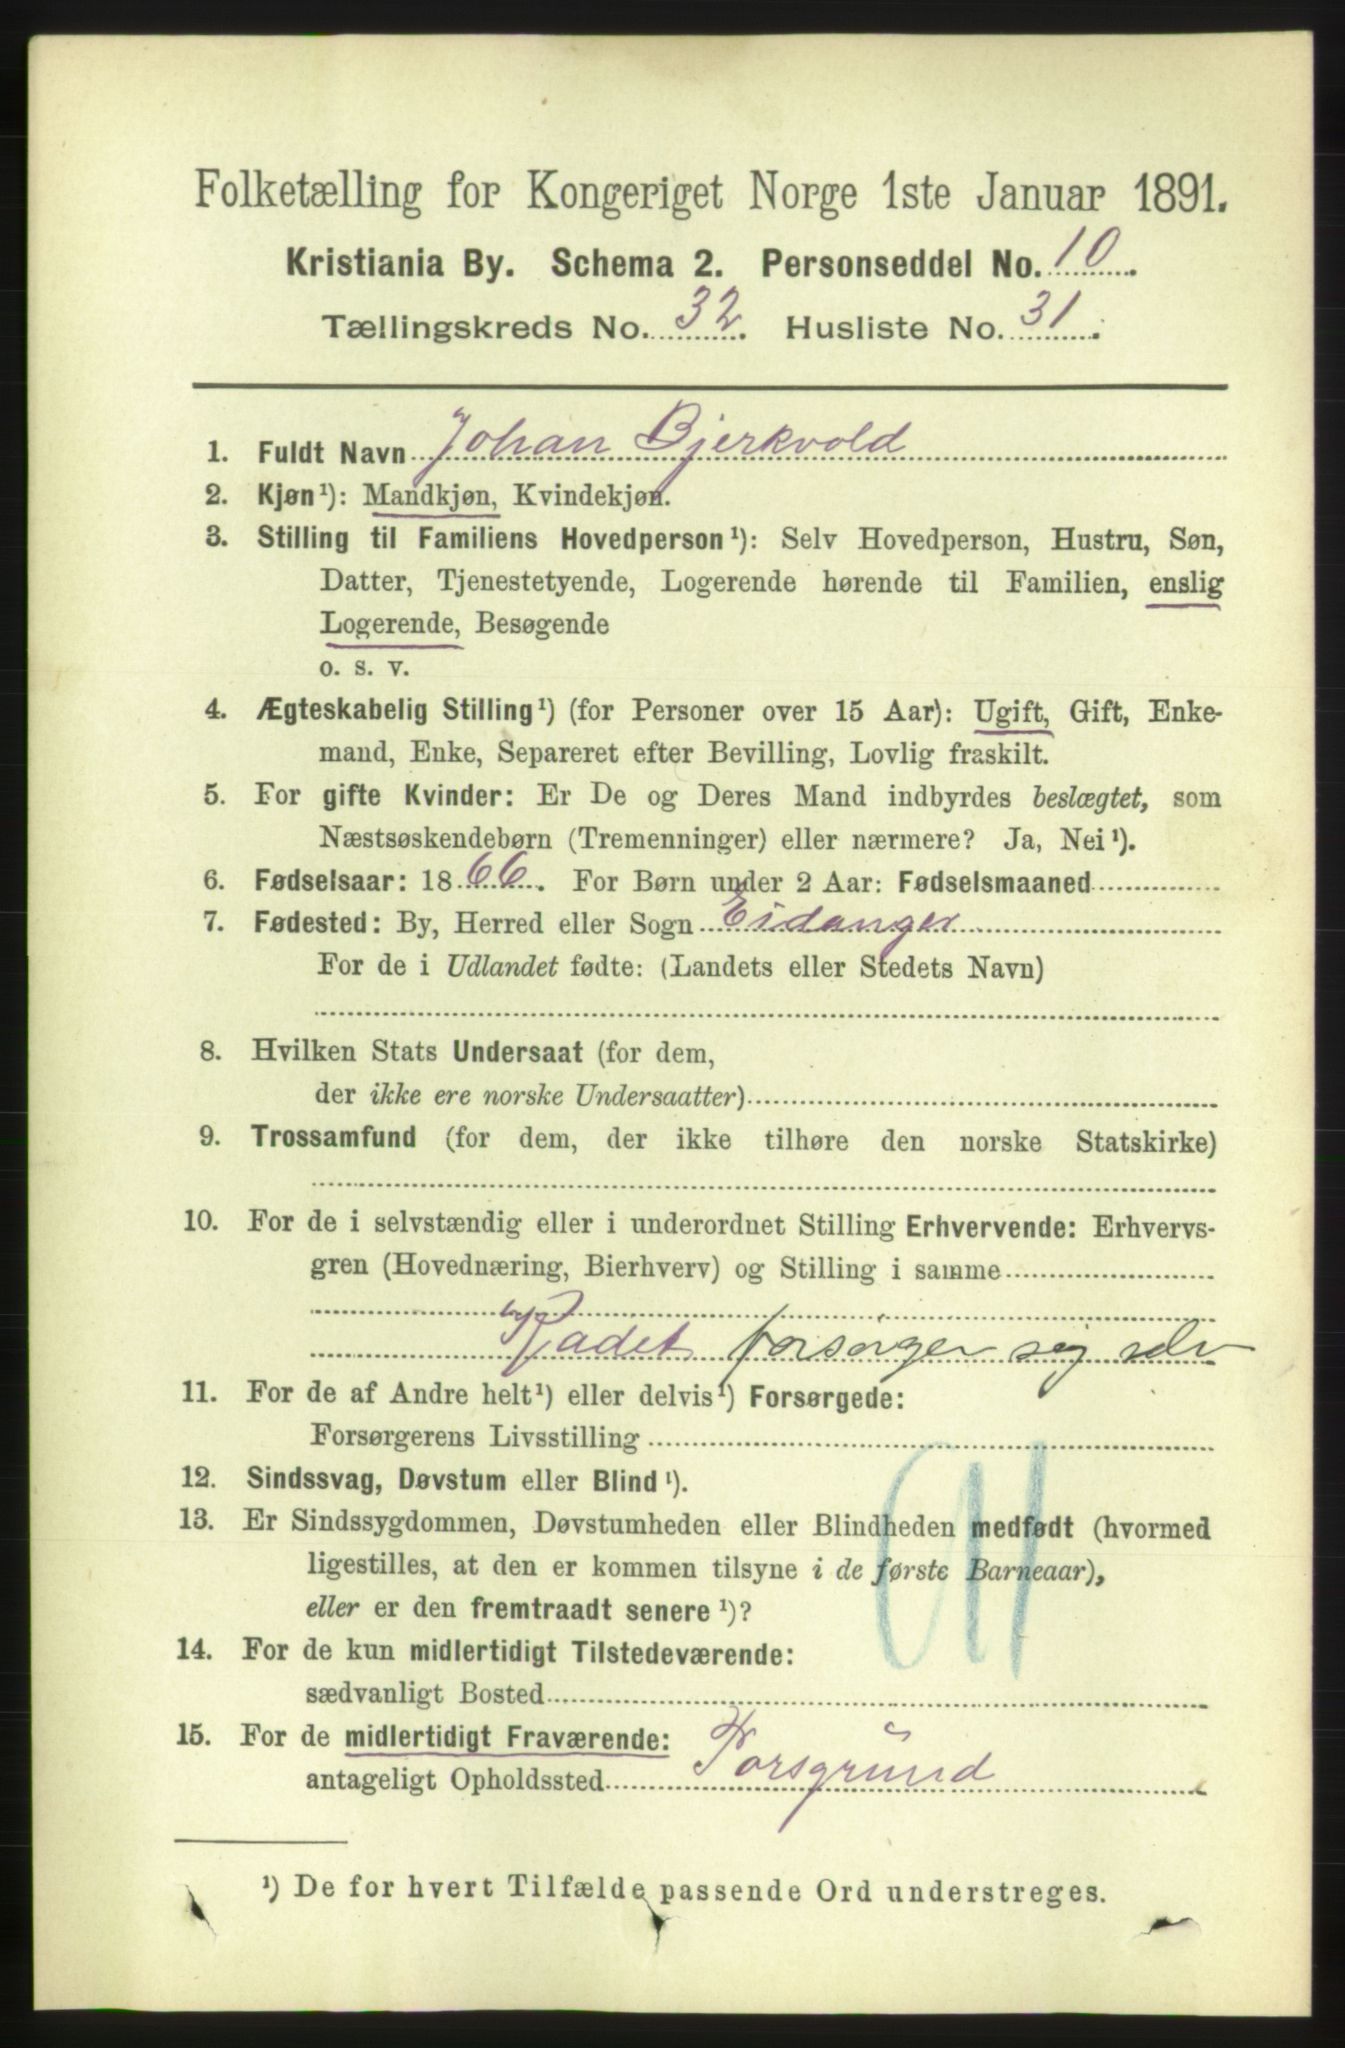 Folketælling for Kongeriget Norge 1ste Januar 1891.
Kristiania By. Schema 2. Personseddel No. 10.
Tællingskreds No. 32. Husliste No. 31.
1. Fuldt Navn Johan Bjerkvold
2. Kjøn¹): Mandkjøn, Kvindekjøn.
3. Stilling til Familiens Hovedperson¹): Selv Hovedperson, Hustru, Søn,
Datter, Tjenestetyende, Logerende hørende til Familien, enslig
Logerende, Besøgende
o. s. v.
4. Ægteskabelig Stilling¹) (for Personer over 15 Aar): Ugift, Gift, Enke-
mand, Enke, Separeret efter Bevilling, Lovlig fraskilt.
5. For gifte Kvinder: Er De og Deres Mand indbyrdes beslægtet, som
Næstsøskendebørn (Tremenninger) eller nærmere? Ja, Nei¹).
6. Fødselsaar: 1866. For Børn under 2 Aar: Fødselsmaaned
7. Fødested: By, Herred eller Sogn Eidanger
For de i Udlandet fødte: (Landets eller Stedets Navn)
8. Hvilken Stats Undersaat (for dem,
der ikke ere norske Undersaatter)
9. Trossamfund (for dem, der ikke tilhøre den norske Statskirke)
10. For de i selvstændig eller i underordnet Stilling Erhvervende: Erhvervs-
gren (Hovednæring, Bierhverv) og Stilling i samme
Kadet forsørger sig selv
11. For de af Andre helt¹) eller delvis¹) Forsørgede:
Forsørgerens Livsstilling
12. Sindssvag, Døvstum eller Blind¹).
13. Er Sindssygdommen, Døvstumheden eller Blindheden medfødt (hvormed
ligestilles, at den er kommen tilsyne i de første Barneaar),
eller er den fremtraadt senere¹)?
14. For de kun midlertidigt Tilstedeværende:
sædvanligt Bosted
15. For de midlertidigt Fraværende:
antageligt Opholdssted Porsgrund
¹) De for hvert Tilfælde passende Ord understreges.